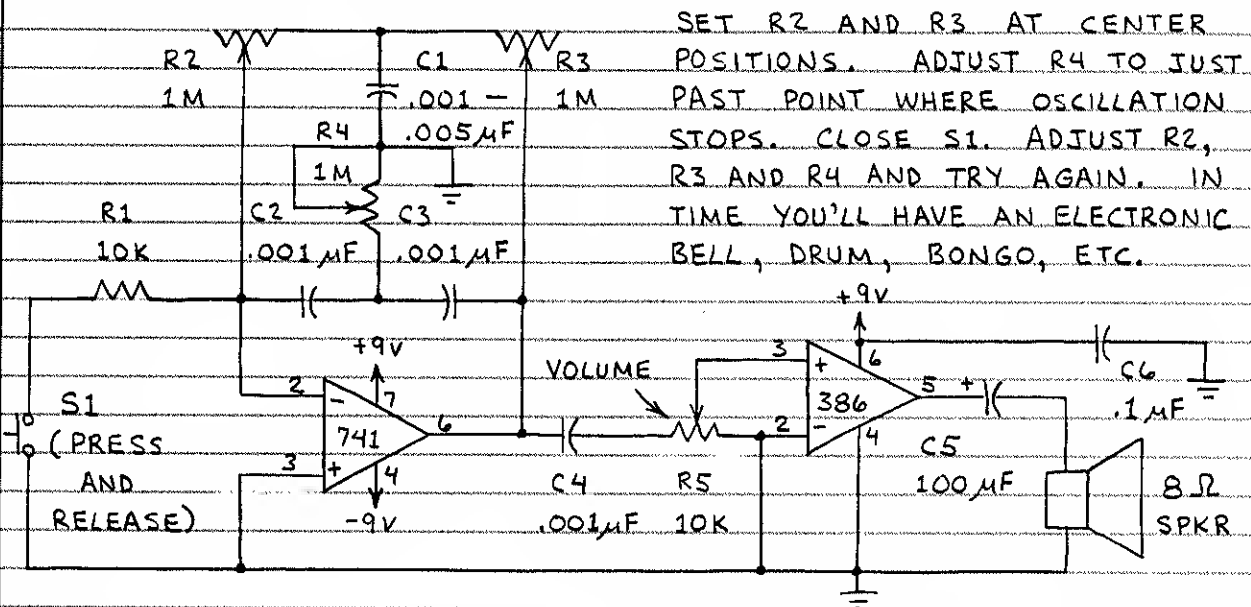 SET R2 AND R3 AT CENTER
POSITIONS. ADJUST R4 TO JUST
PAST POINT WHERE OSCILLATION
STOPS. CLOSE S1. ADJUST R2,
R3 AND R4 AND TRY AGAIN. IN
TIME YOU'LL HAVE AN ELECTRONIC
BELL, DRUM, BONGO, ETC.
R2
1M
C1
.001 –
.005µF
R3
1M
R4
1M
R1
10K
C2
.001µF
C3
.001µF
S1
(PRESS
AND
RELEASE)
+9V
2
-
7
741
6
3
+
4
-9V
VOLUME
C4
.001µF
R5
10K
+9V
3
+
6
386
5
+
2
-
4
C5
100µF
C6
.1µF
8Ω
SPKR